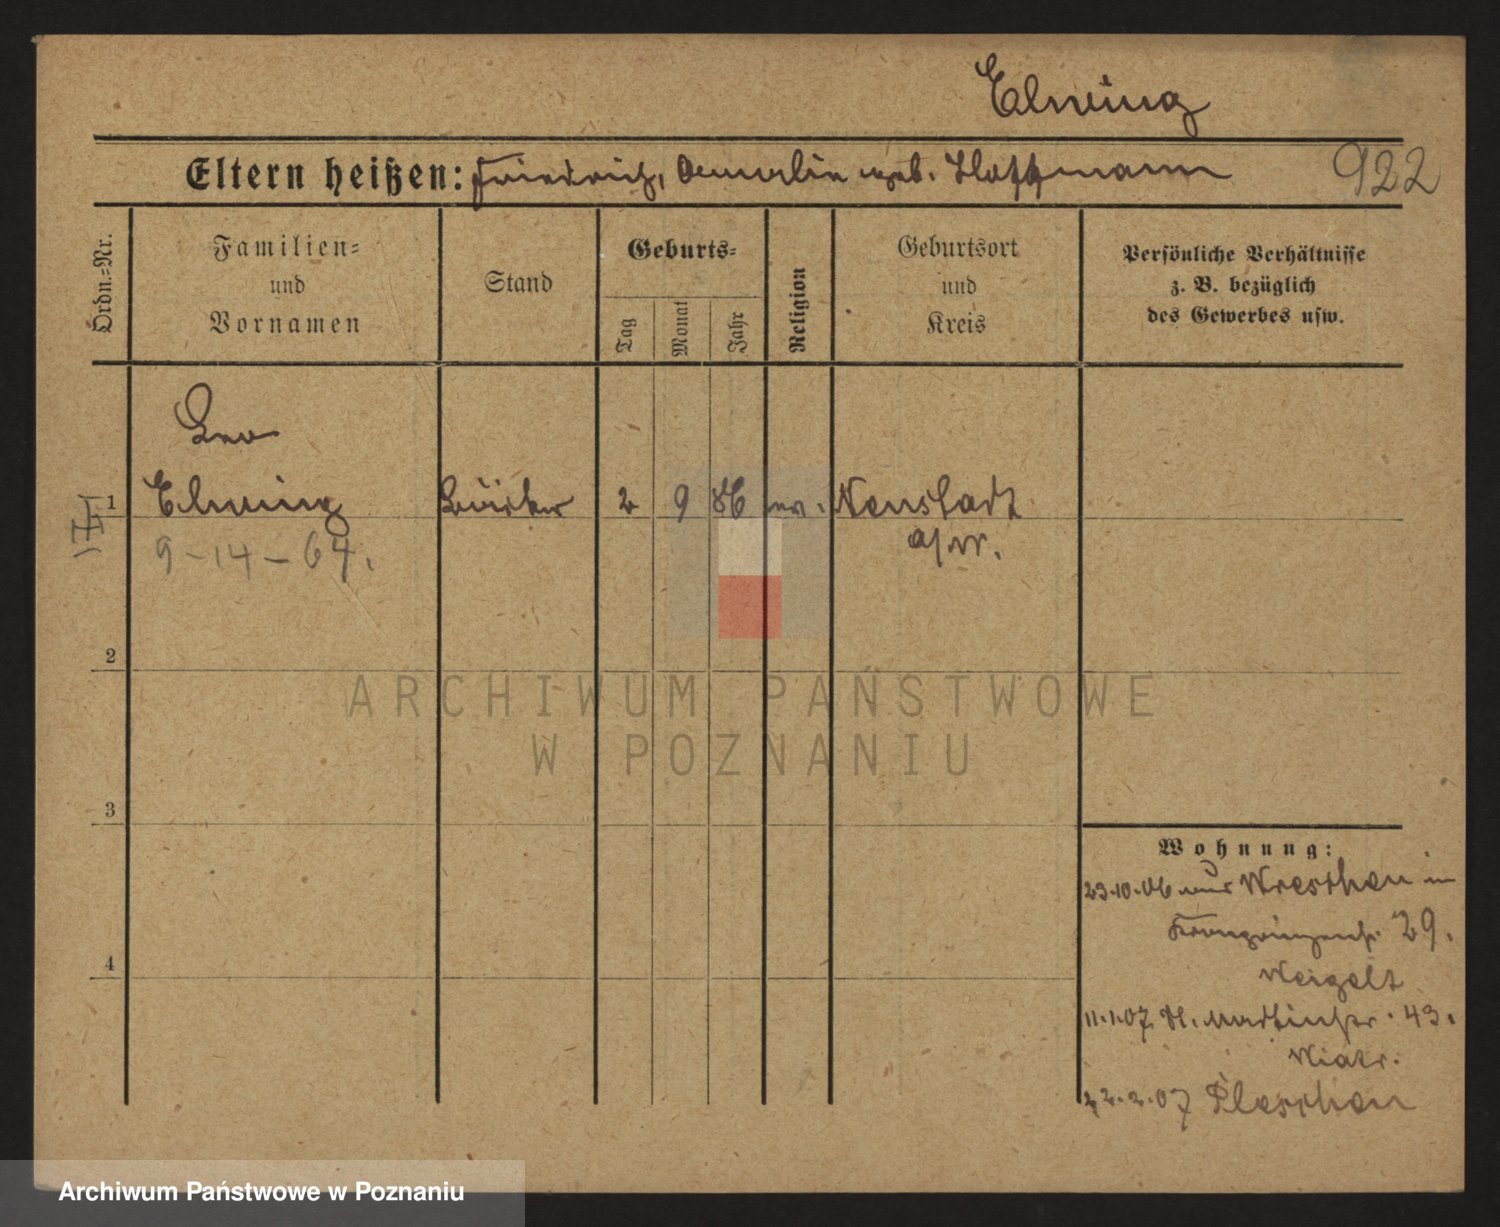 Elwing
Eltern heißen: Friedrich, Amalie geb. Hoffmann
922
Ordn.=Nr.
Familien=
und
Vornamen
Stand
Geburts=
Tag
Monat
Jahr
Religion
Geburtsort
und
Kreis
Persönliche Verhältnisse
z. B. bezüglich
des Gewerbes usw.
Leo
1 Elwing 2 9 86 ev. Neustadt
9-14-64. a/W.
2
3
4
Wohnung:
23.10.06 aus Wreschen in
Kronprinzenstr. 29.
Weigelt
11.1.07 St. Martinstr. 43.
22.2.07 Pleschen
ARCHIWUM PAŃSTWOWE
W POZNANIU
Archiwum Państwowe w Poznaniu